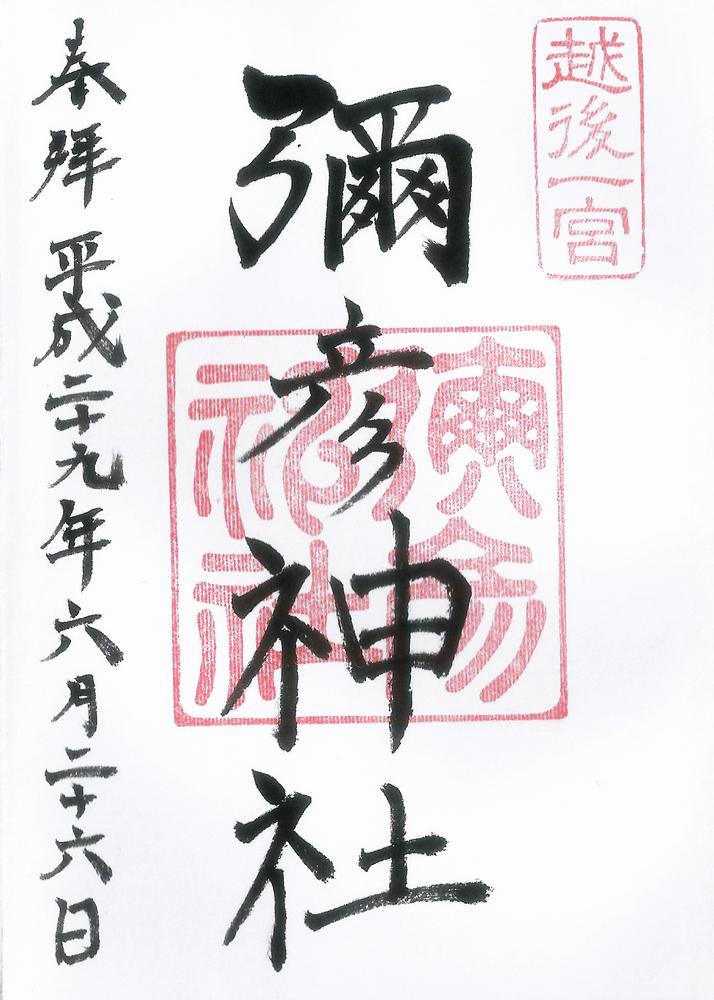 越後一宮
彌彦神社
奉拝 平成二十九年六月二十六日